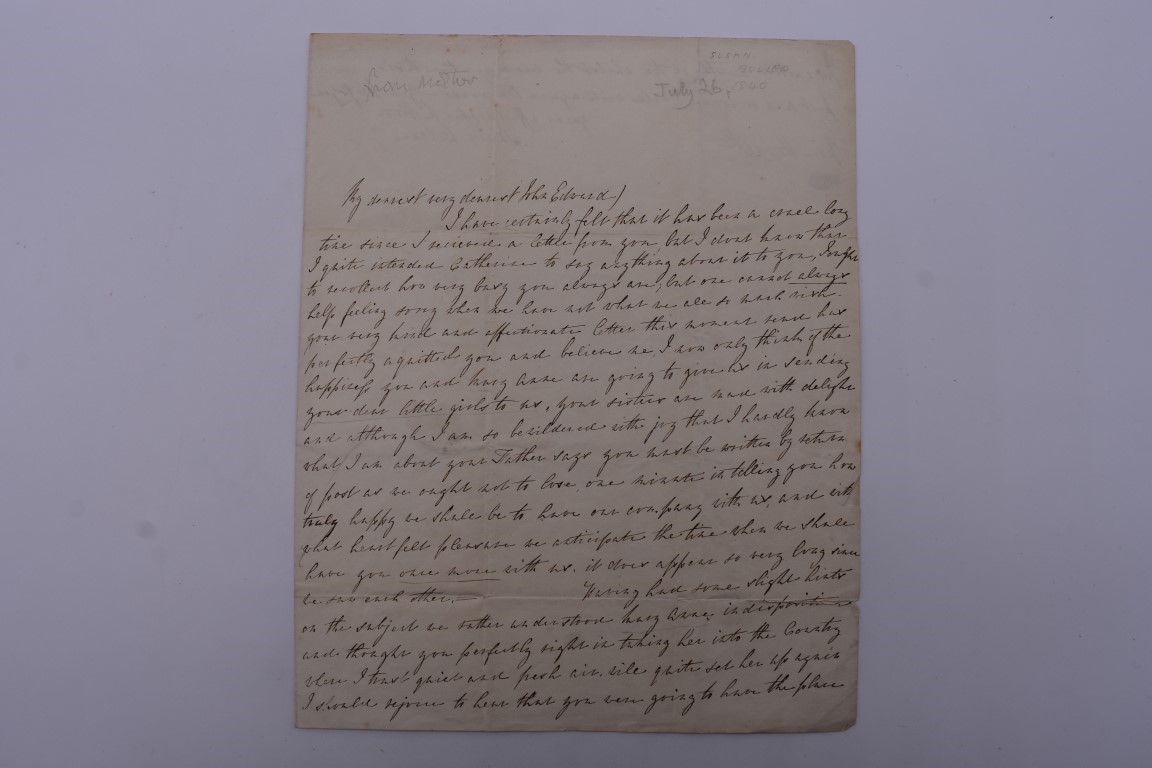 from Mother
SUSAN
July 26, 1840
My dearest very dearest John Edward)
I have certainly felt that it has been a cruel long
time since I recieved a letter from you, but I dont know that
I quite intended Catherine to say anything about it to you, I ought
to recollect how very busy you always are, but one cannot always
help feeling sorry when we have not what we all so much wish.
your very kind and affectionate letter this moment read has
perfectly aquitted you and believe me, I now only think of the
happiness you and Mary Anne are going to give us in sending
your dear little girls to us, your sisters are mad with delight
and although I am so bewildered with joy that I hardly know
what I am about your Father says you must be written by return
of post as we ought not to lose one minute in telling you how
truly happy we shall be to have our company with us, and with
what heart felt pleasure we anticipate the time when we shall
have you once more with us. it does appear so very long since
we saw each other.
Having had some slight hints
on the subject we rather understood Mary Annes indisposition
and thought you perfectly right in taking her into the Country
where I trust quiet and fresh air will quite set her up again
I should rejoice to hear that you were going to have the place